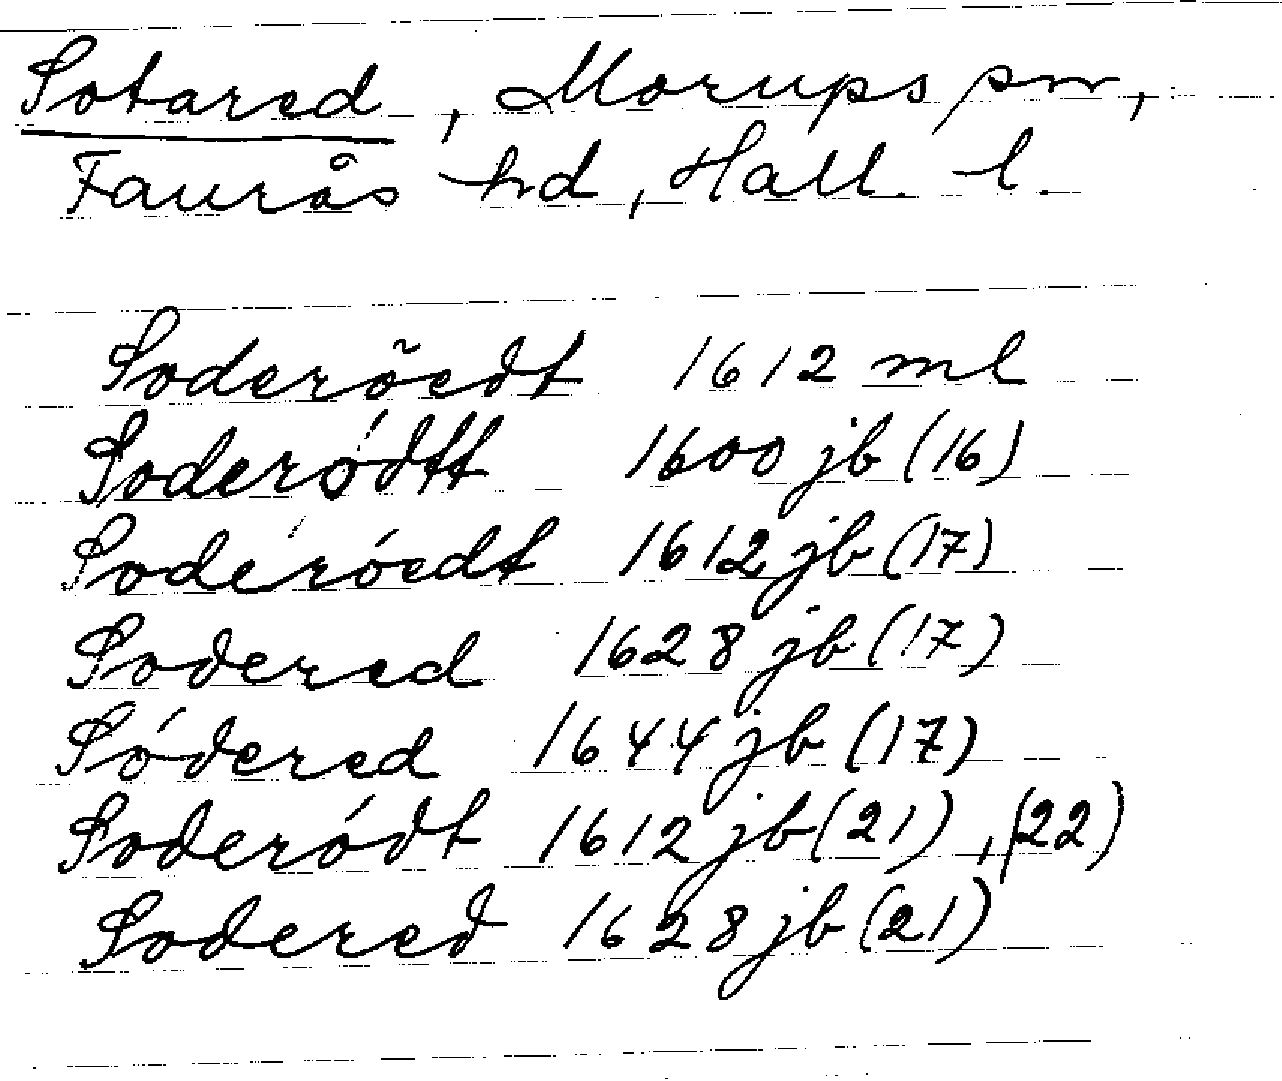 Sotared, Morups sn,
Faurås hd, Hall. l.
Soderõedt 1612 ml
Soderǿdtt 1600 jb (16)
Soderóedt 1612 jb (17)
Sodered 1628 jb (17)
Sódered 1644 jb (17)
Soderódt 1612 jb (21), (22)
Sodered 1628 jb (21)